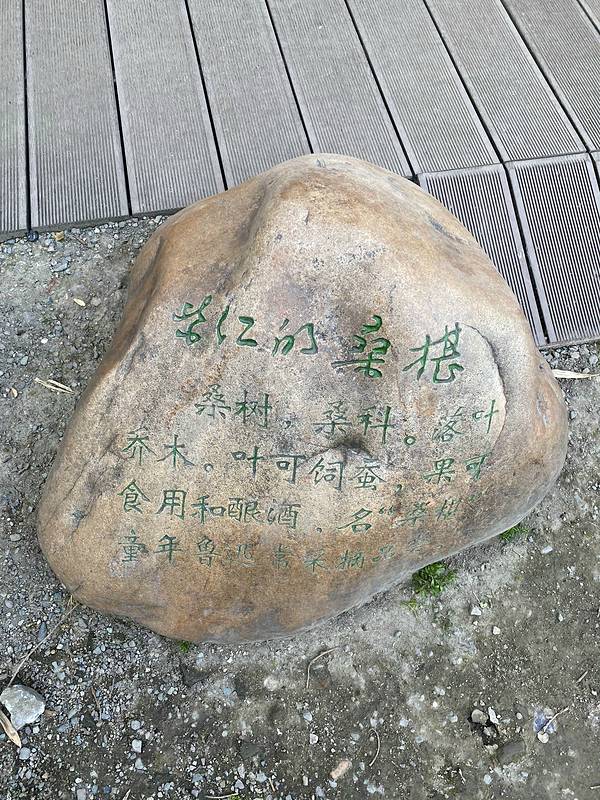 紫红的桑椹
桑树，桑科。落叶
乔木。叶可饲蚕，果可
食用和酿酒，名“桑椹”
童年鲁迅常采摘品尝